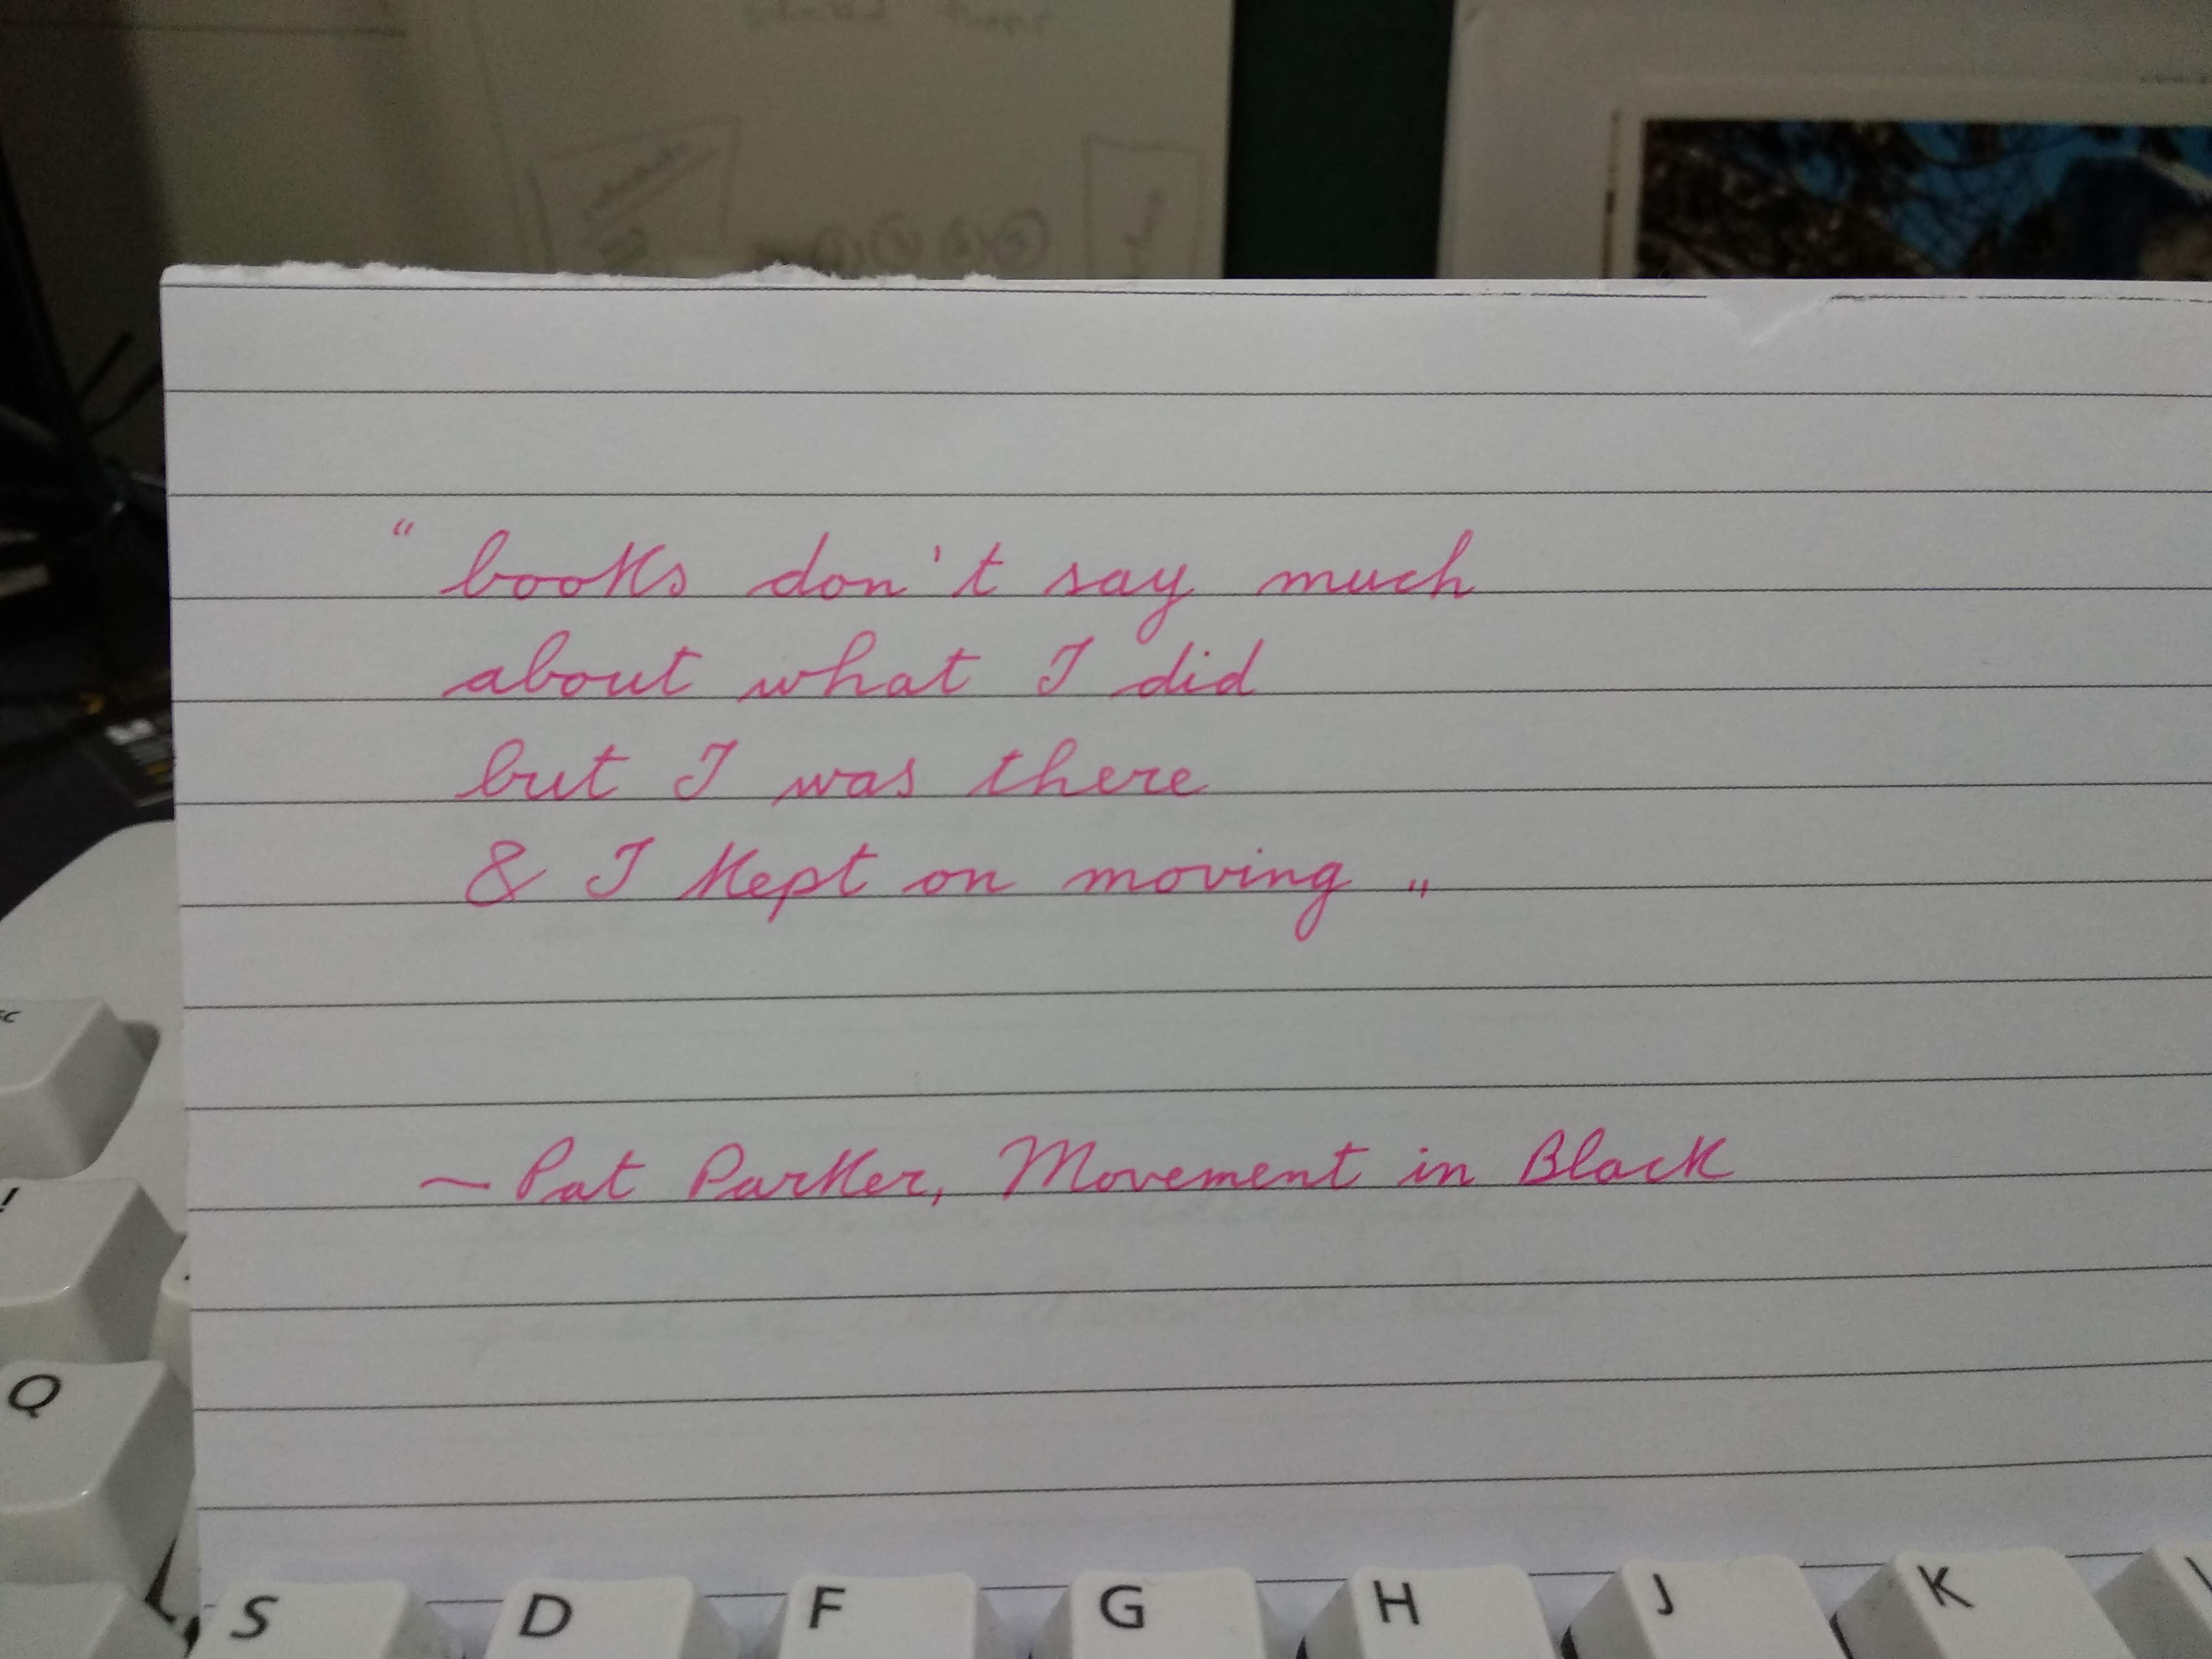 " books don't say much
about what I did
but I was there
& I kept on moving "
~ Pat Parker, Movement in Black
Q
S D F G H J K